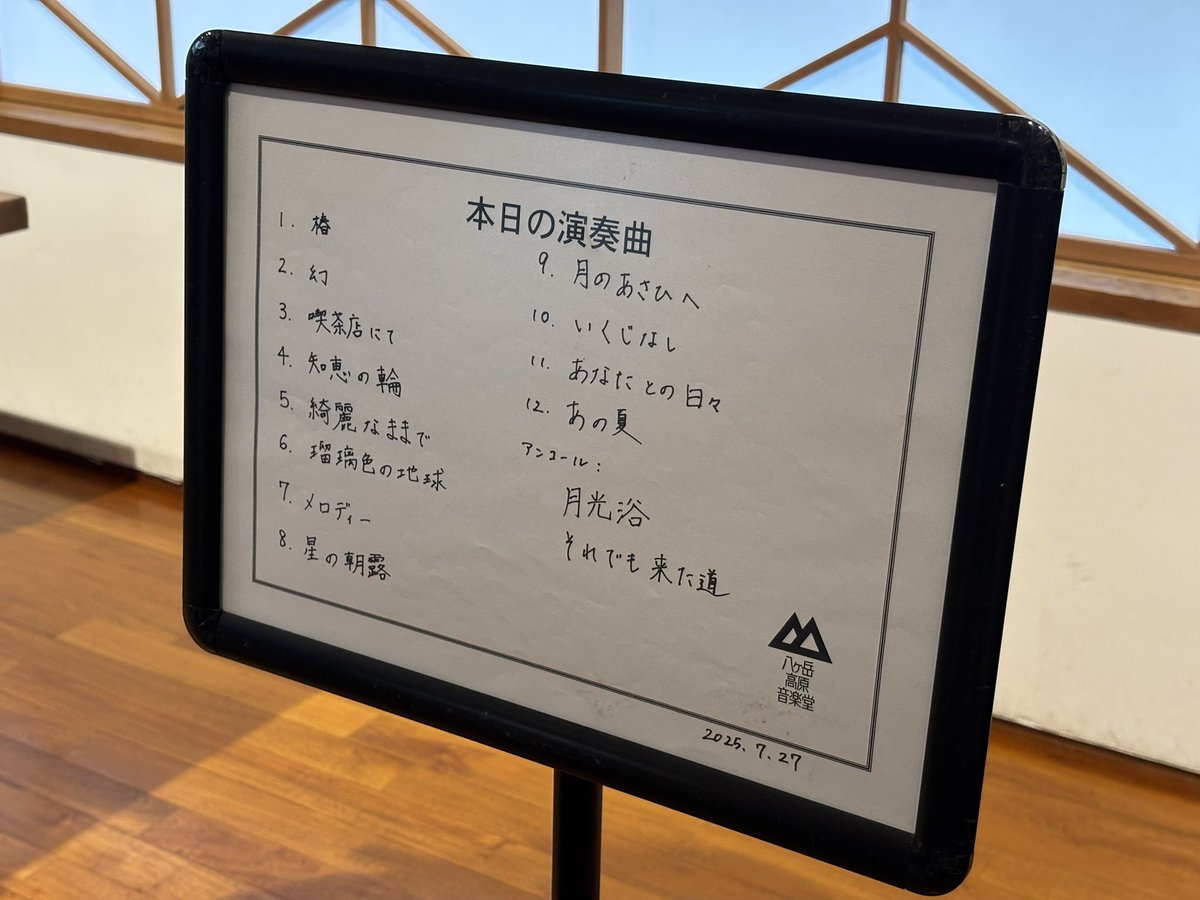 本日の演奏曲
1. 椿
2. 幻
3. 喫茶店にて
4. 知恵の輪
5. 綺麗なままで
6. 瑠璃色の地球
7. メロディー
8. 星の朝露
9. 月のあさひへ
10. いくじなし
11. あなたとの日々
12. あの夏
アンコール:
月光浴
それでも来た道
八ヶ岳
高原
音楽堂
2025.7.27